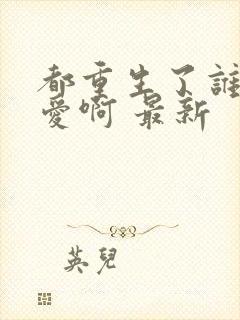 都重生了誰
愛啊 最新
英兒